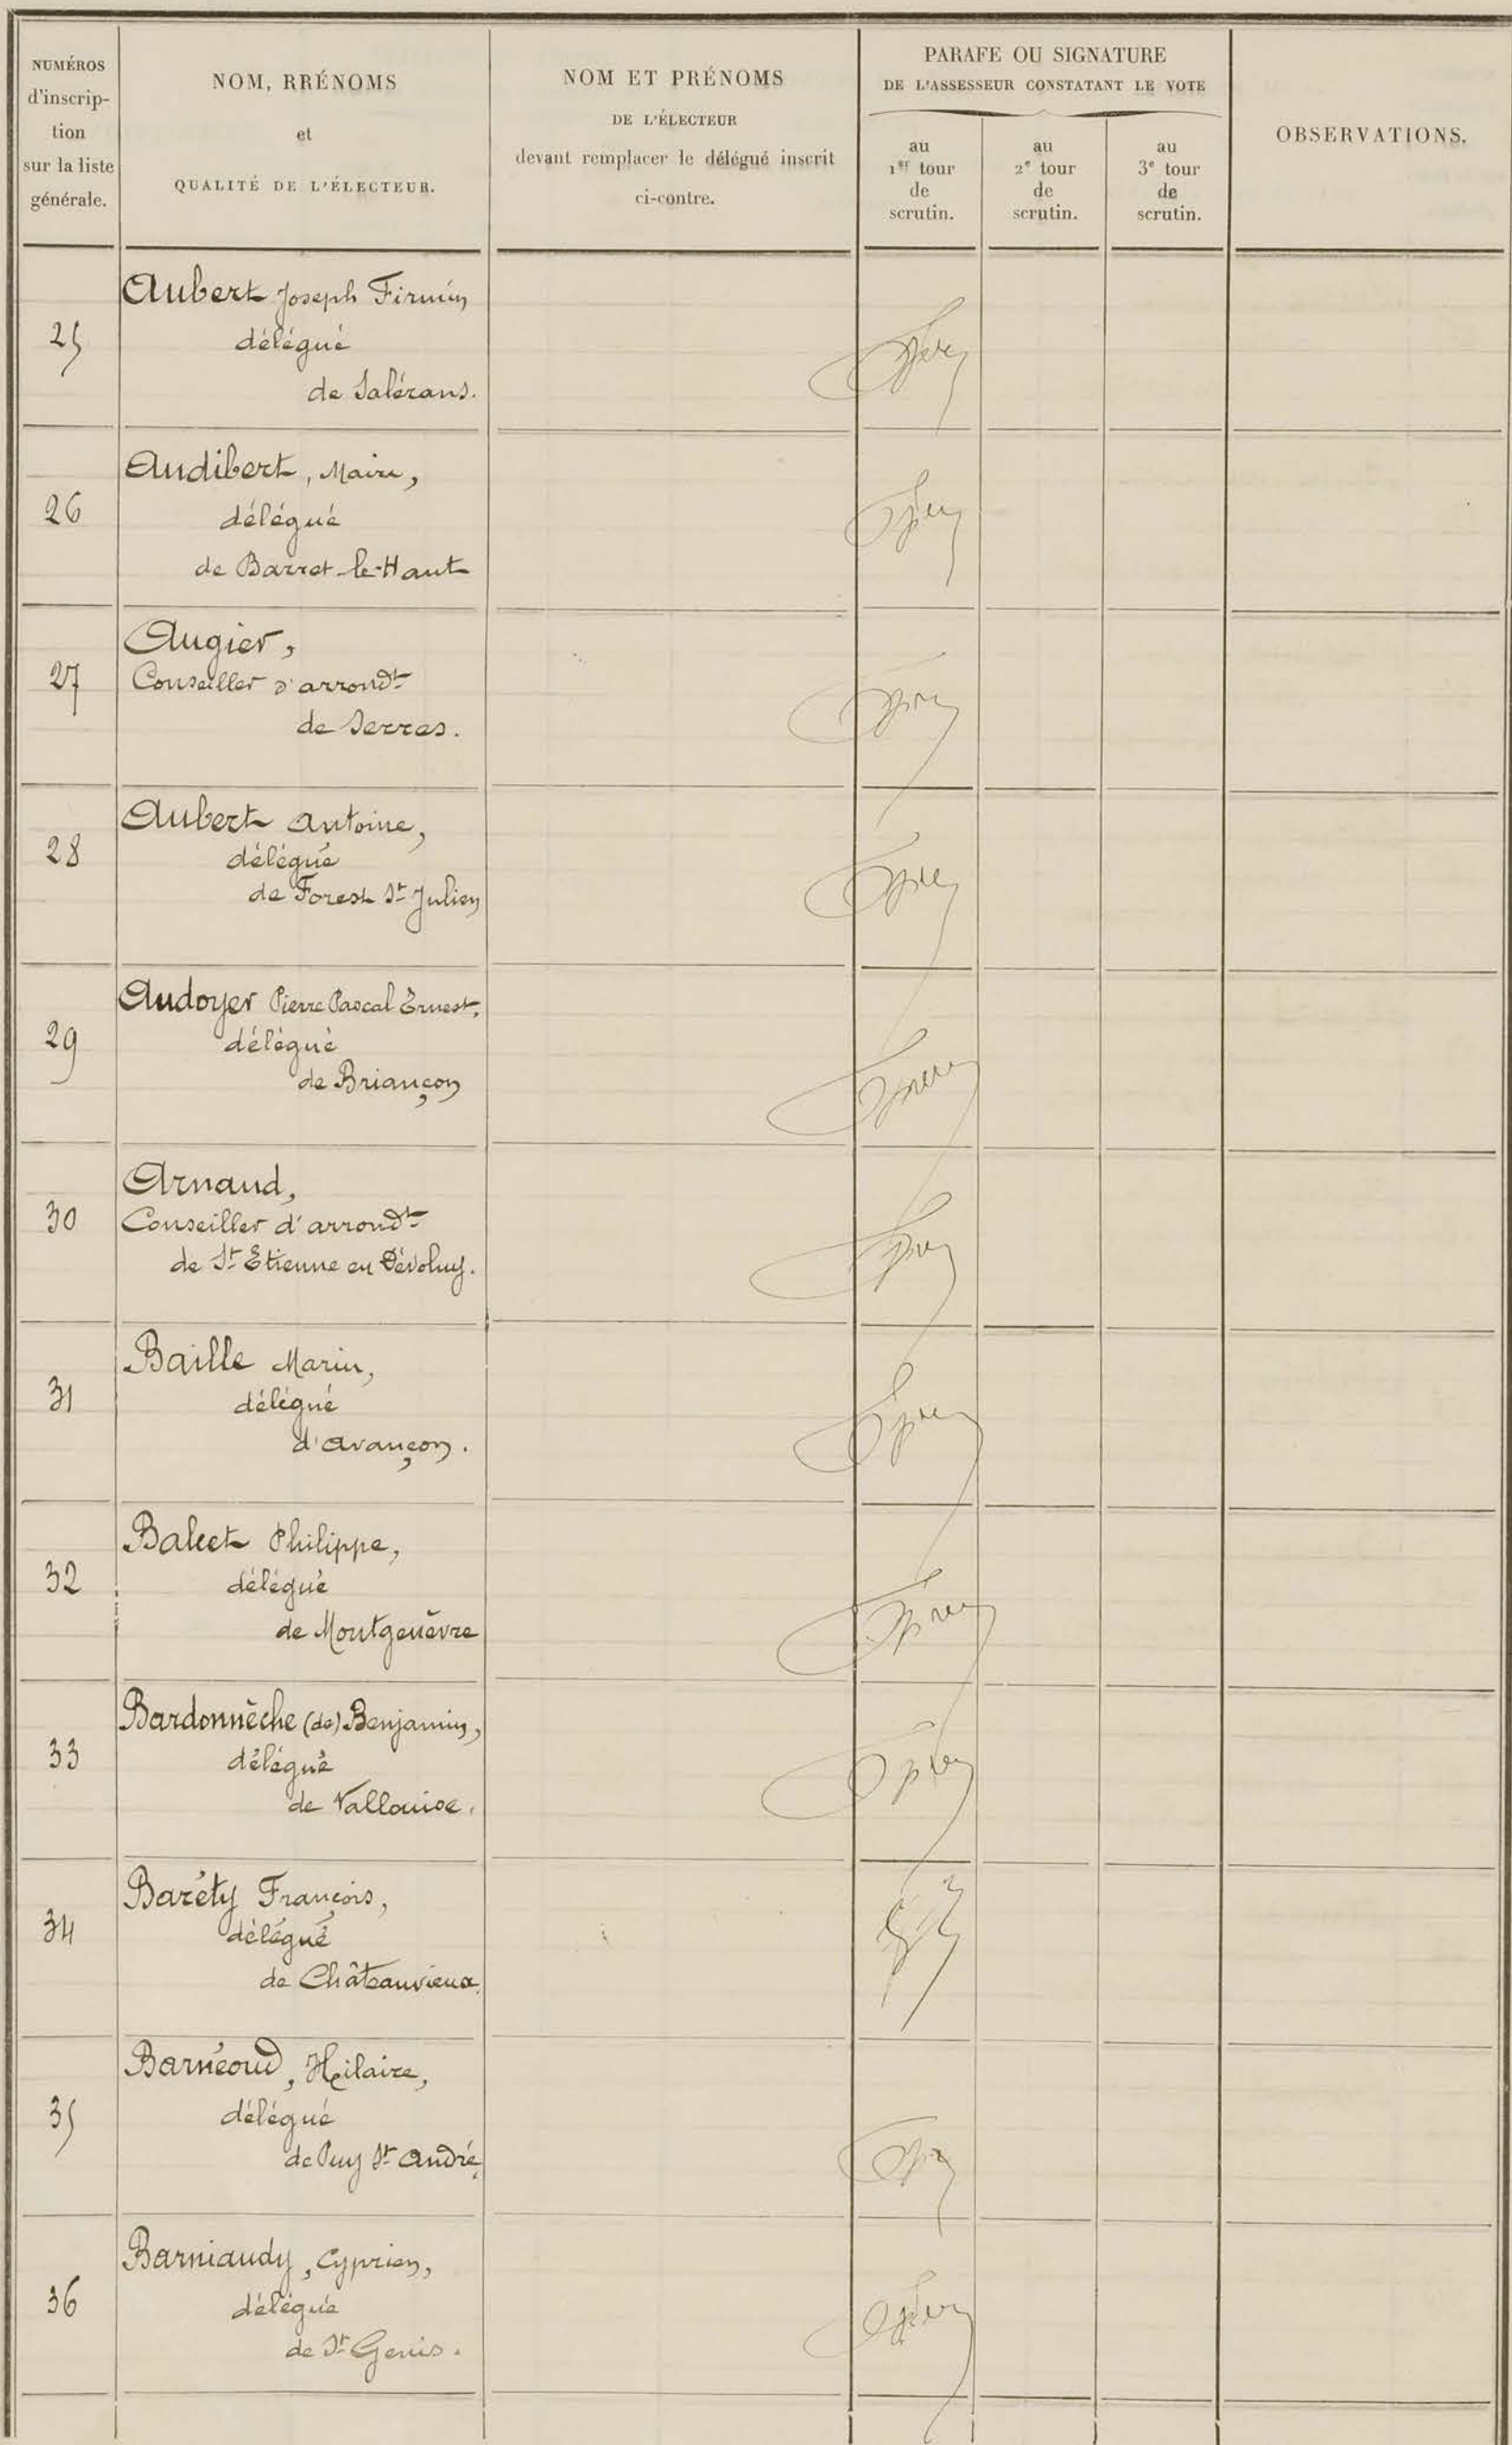 NUMÉROS
d'inscrip-
tion
sur la liste
générale.
NOM, RRÉNOMS
et
QUALITÉ DE L'ÉLECTEUR.
NOM ET PRÉNOMS
DE L'ÉLECTEUR
devant remplacer le délégué inscrit
ci-contre.
PARAFE OU SIGNATURE
DE L'ASSESSEUR CONSTATANT LE VOTE
au
1er tour
de
scrutin.
au
2e tour
de
scrutin.
au
3e tour
de
scrutin.
OBSERVATIONS.
25
Aubert Joseph Firmin
délégué
de Salérans.
26
Audibert, Maire,
délégué
de Barret-le-Haut
27
Augier,
Conseiller d'arrondt
de Serres.
28
Aubert Antoine,
délégué
de Forest St Julien
29
Audoyer Pierre Pascal Ernest,
délégué
de Briançon
30
Arnaud,
Conseiller d'arrondt
de St Etienne en Dévoluy.
31
Baille Marin,
délégué
d'Avançon.
32
Balcet Philippe,
délégué
de Montgenèvre
33
Bardonnèche (de) Benjamin,
délégué
de Vallouise.
34
Baréty François,
délégué
de Châteauvieux.
35
Barnéoud, Hilaire,
délégué
de Puy St André,
36
Barniaudy, Cyprien,
délégué
de St Genis.